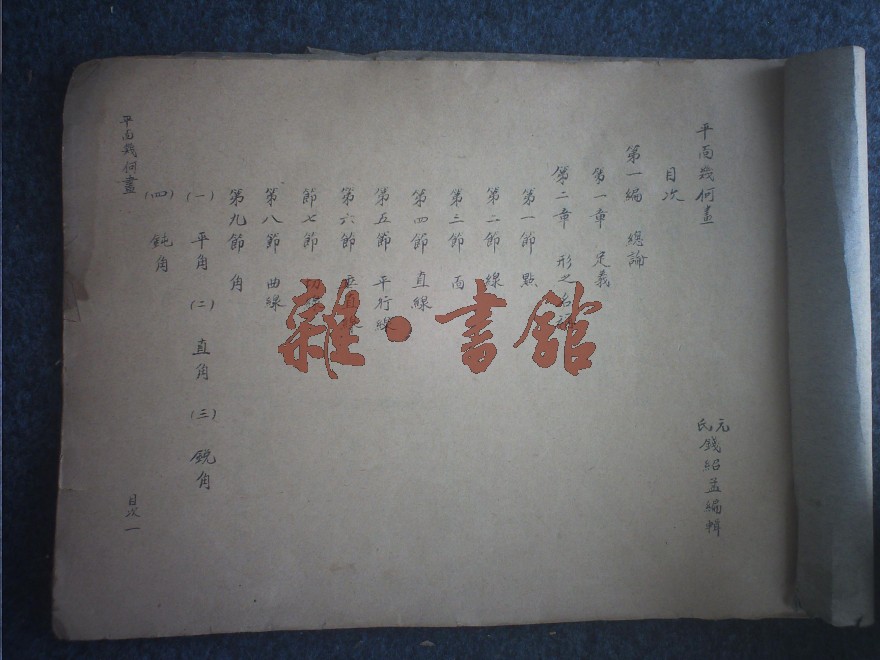 平面幾何畫
元氏錢紹編輯
目次
第一編 總論
第一章 定義
第二章 形之名
第一節 點
第二節 線
第三節 面
第四節 直線
第五節 平行線
第六節 垂直
節七節 切線
第八節 曲線
第九節 角
(一) 平角 (二) 直角 (三) 銳角
(四) 鈍角
平面幾何畫 目次一
雜·書館